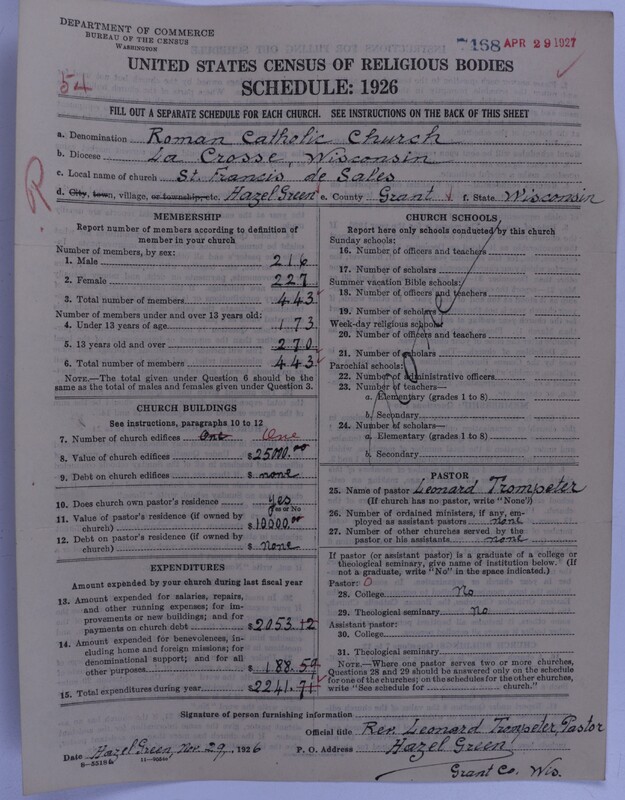 DEPARTMENT OF COMMERCE
BUREAU OF THE CENSUS
WASHINGTON
168 APR 29 1927
UNITED STATES CENSUS OF RELIGIOUS BODIES
54
SCHEDULE: 1926
FILL OUT A SEPARATE SCHEDULE FOR EACH CHURCH. SEE INSTRUCTIONS ON THE BACK OF THIS SHEET
a. Denomination Roman Catholic Church
b. Diocese La Crosse, Wisconsin
c. Local name of church St. Francis de Sales
R
d. City, town, village, or township, etc. Hazel Green e. County Grant f. State Wisconsin
MEMBERSHIP
Report number of members according to definition of member in your church
Number of members, by sex:
1. Male 216
2. Female 227
3. Total number of members 443
Number of members under and over 13 years old:
4. Under 13 years of age 173
5. 13 years old and over 270
6. Total number of members 443
NOTE.—The total given under Question 6 should be
same as the total of males and females given under Question 3.
CHURCH BUILDINGS
See instructions, paragraphs 10 to 12
7. Number of church edifices One
8. Value of church edifices $25000.00
9. Debt on church edifices $ none
10. Does church own pastor's residence yes
Yes or No
11. Value of pastor's residence (if owned by
church) $10000.00
12. Debt on pastor's residence (if owned by
church) $ none
EXPENDITURES
Amount expended by your church during last fiscal year
13. Amount expended for salaries, repairs,
and other running expenses; for im-
provements or new buildings; and for
payments on church debt $2053.12
14. Amount expended for benevolences, in-
cluding home and foreign missions; for
denominational support; and for all
other purposes $188.59
15. Total expenditures during year $2241.71
CHURCH SCHOOLS
Report here only schools conducted by this church
Sunday schools:
16. Number of officers and teachers
17. Number of scholars
Summer vacation Bible schools:
18. Number of officers and teachers
19. Number of scholars
Week-day religious schools:
20. Number of officers and teachers
21. Number of scholars
Parochial schools:
22. Number of administrative officers
23. Number of teachers—
a. Elementary (grades 1 to 8)
b. Secondary
24. Number of scholars—
a. Elementary (grades 1 to 8)
b. Secondary
PASTOR
25. Name of pastor Leonard Trompeter
(If church has no pastor, write "None")
26. Number of ordained ministers, if any, em-
ployed as assistant pastors none
27. Number of other churches served by the
pastor or his assistants none
If pastor (or assistant pastor) is a graduate of a college or
theological seminary, give name of institution below. (If
not a graduate, write "No" in the space indicated.)
Pastor: 0
28. College No
29. Theological seminary No
Assistant pastor:
30. College
31. Theological seminary
NOTE.—Where one pastor serves two or more churches,
Questions 28 and 29 should be answered only on the schedule
for one of the churches; on the schedules for the other churches,
write "See schedule for church."
Signature of person furnishing information
Official title Rev. Leonard Trompeter, Pastor
Date Hazel Green, Nov. 29, 1926 P. O. Address Hazel Green
Grant Co. Wis.